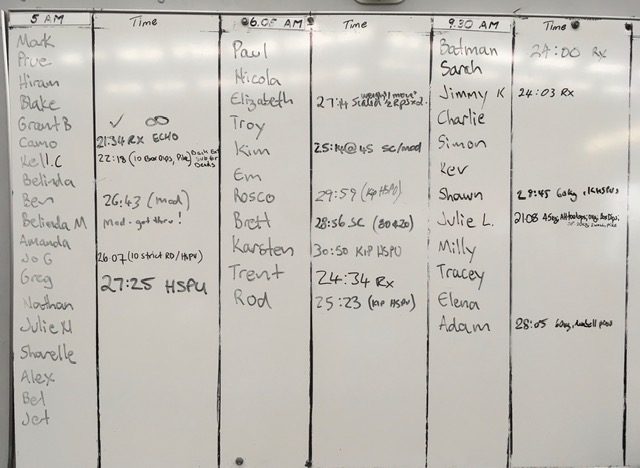 5 AM Time 6.05 AM Time 9.30 AM Time
Mark
Hiram
Blake
Grant B ✓ ∞
Camo 21:34 RX ECHO
Kell.C 22:18 (10 Box Dips,
Belinda
Ben 26:43 (mod)
Belinda M mod - got thru!
Amanda
Jo G 26:07 (10 strict RD/HSPU)
Greg 27:25 HSPU
Nathan
Julie M
Sharelle
Alex
Bel
Jet
Paul
Nicola
Elizabeth Scaled
Troy
Kim 25:14 @ 45 SC/mod
Em
Rosco 29:59 (Kip HSPU)
Brett 28:56 SC
Karsten 30:50 KIP HSPU
Trent 24:34 Rx
Rod 25:23 (KIP HSPU)
Batman 24:00 RX
Sarah
Jimmy K 24:03 RX
Charlie
Simon
Kev
Shawn 60kg
Julie L. 21:08
Milly
Tracey
Elena
Adam 28:05 60kg,